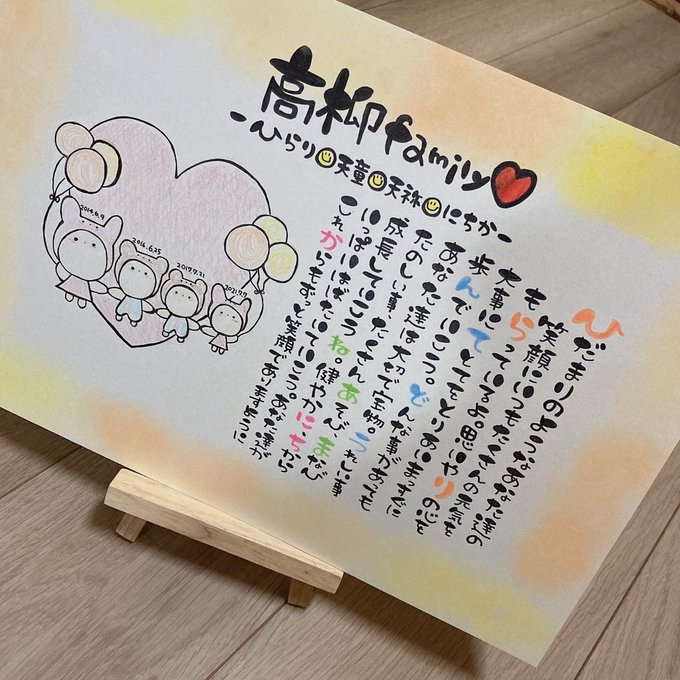 高柳family
-ひらり天童天祢にちか-
2014.6.9
2016.6.25
2017.7.21
2021.7.7
ひだまりのようなあなた達の
笑顔にいつもたくさんの元気を
もらっているよ。思いやりの心を
大事にてとてをとりあいまっすぐに
歩んでいこう。どんな事があっても
あなた達は大切で宝物。うれしい事
たのしい事、たくさんあそび、まなび
成長していこうね。健やかにちから
いっぱいはばたいていこう。あなた達が
これからもずっと笑顔でありますように